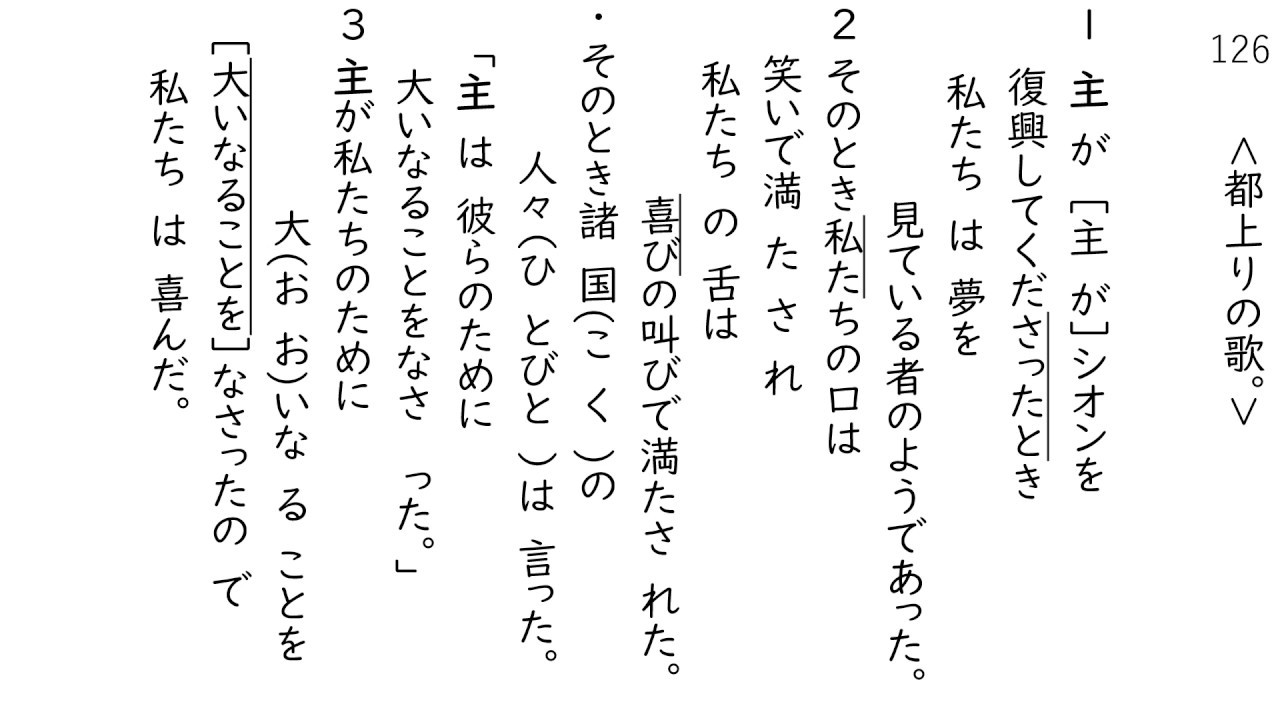 126
<都上りの歌。>
1 主 が [主 が]シオンを
復興してくださったとき
私たち は 夢を
見ている者のようであった。
2 そのとき私たちの口は
笑いで満 た さ れ
私たち の 舌は
喜びの叫びで満たさ れた。
・そのとき諸 国(こ く )の
人々(ひ とびと )は 言った。
「主 は 彼らのために
大いなることをなさ った。」
3 主が私たちのために
大(お お)いな る ことを
[大いなることを]なさったの で
私たち は 喜んだ。